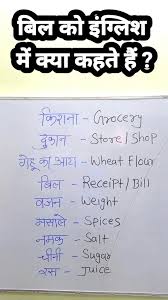 बिल को इंग्लिश
में क्या कहते हैं ?
किराना - Grocery
दुकान - Store/Shop
गेहू का आटा - Wheat Flour
बिल - Receipt/Bill
वजन - Weight
मसाले - Spices
नमक - Salt
चीनी - Sugar
रस - Juice